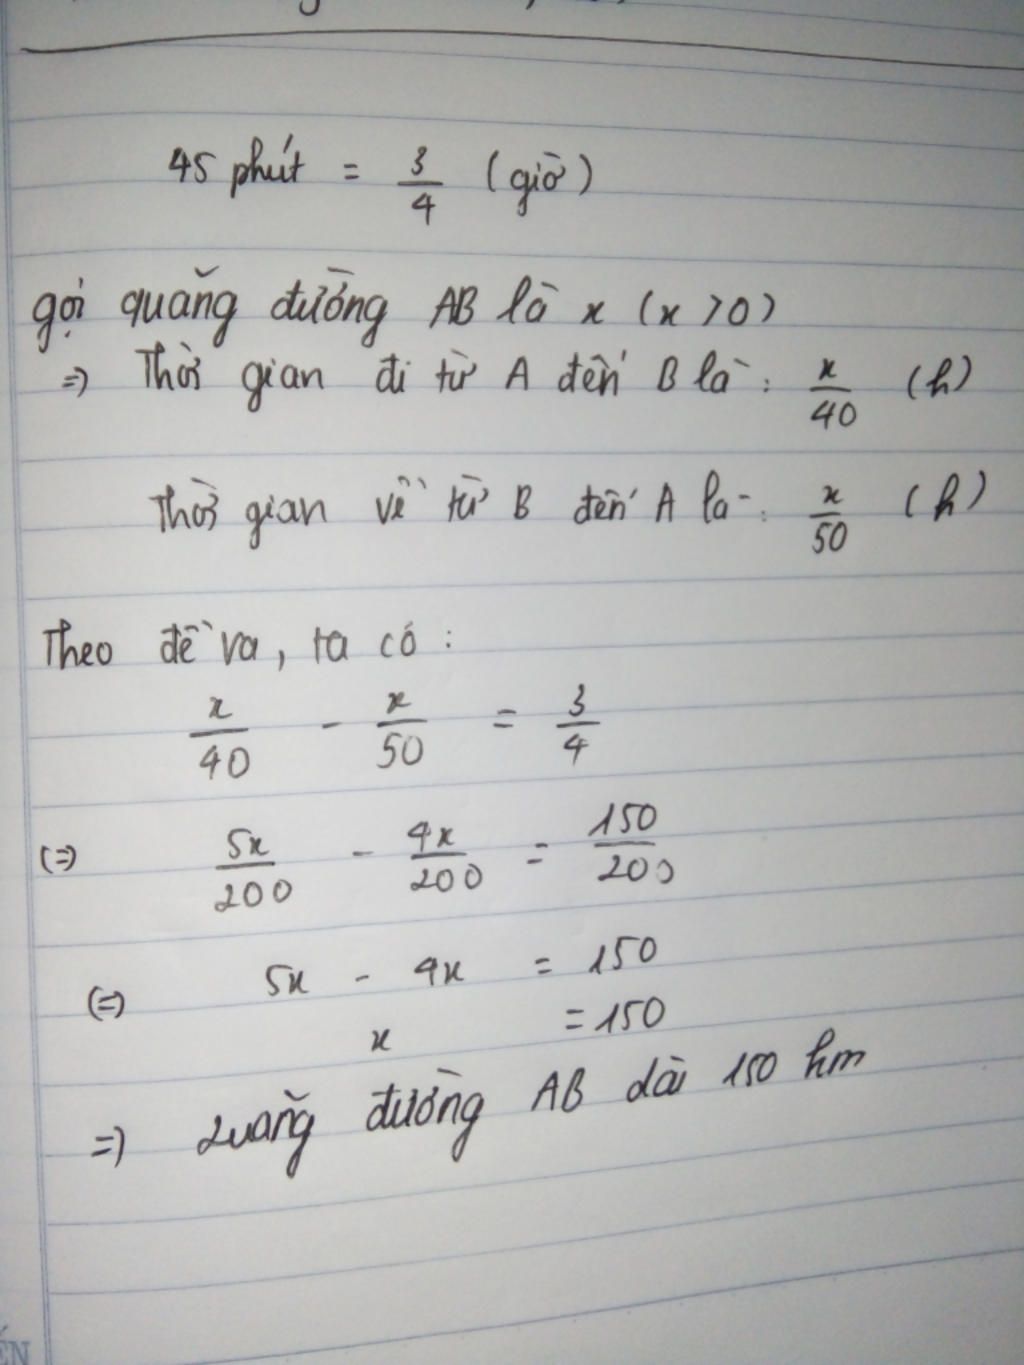 45 phút = 3/4 (giờ)
gọi quãng đường AB là x (x > 0)
=> Thời gian đi từ A đến B là: x/40 (h)
Thời gian về từ B đến A là: x/50 (h)
Theo đề ra, ta có:
x/40 - x/50 = 3/4
(=) 5x/200 - 4x/200 = 150/200
(=) 5x - 4x = 150
x = 150
=> Quãng đường AB dài 150 km